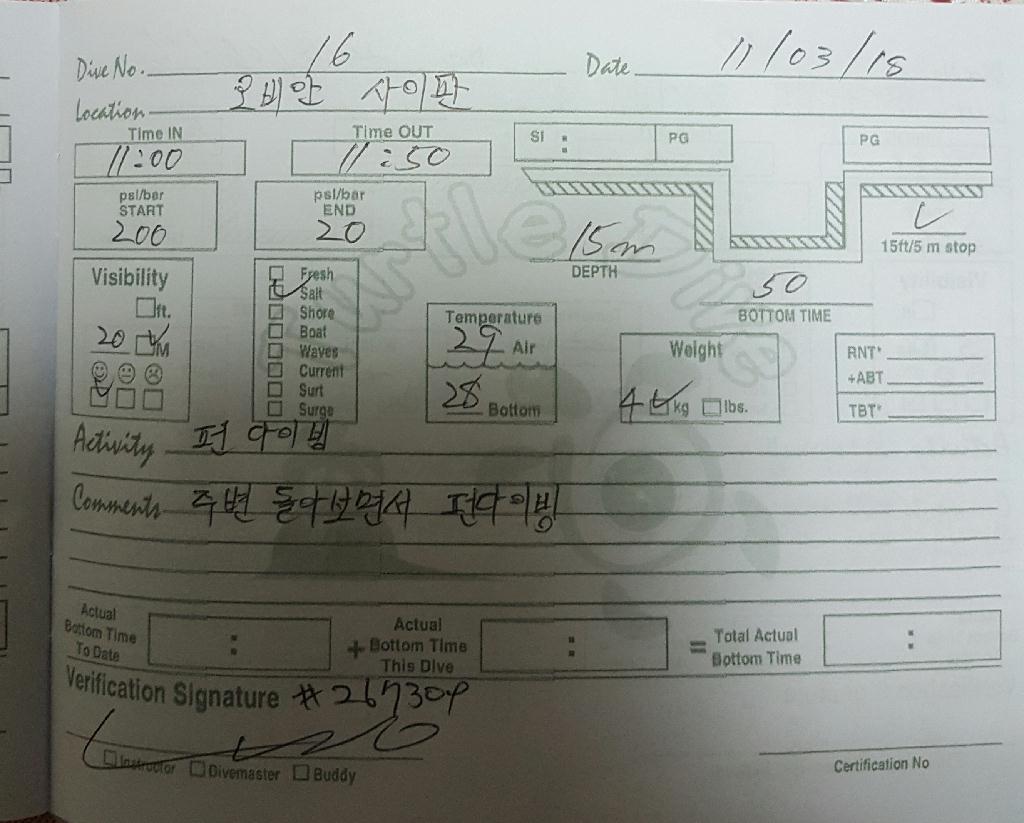 Dive No. 16 Date 11/03/18
Location 오비안 사이판
Time IN Time OUT SI : PG PG
11:00 11:50
psi/bar START 200 psi/bar END 20
15m DEPTH
15ft/5 m stop
50 BOTTOM TIME
Visibility
ft.
20 M
Fresh
Salt
Shore
Boat
Waves
Current
Surf
Surge
Temperature
29 Air
28 Bottom
Weight
4 kg lbs.
RNT*
+ABT
TBT*
Turtle Dive
Activity 펀 다이빙
Comments 주변 돌아보면서 펀다이빙
Actual Bottom Time To Date : + Actual Bottom Time This Dive : = Total Actual Bottom Time :
Verification Signature
Instructor Divemaster Buddy
Certification No